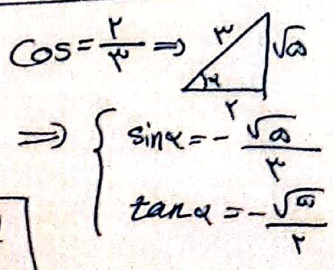 Cos = ۲/۳ ⇒ ۳ √۵ α ۲
⇒ { sinα = - √۵/۳
tanα = - √۵/۲